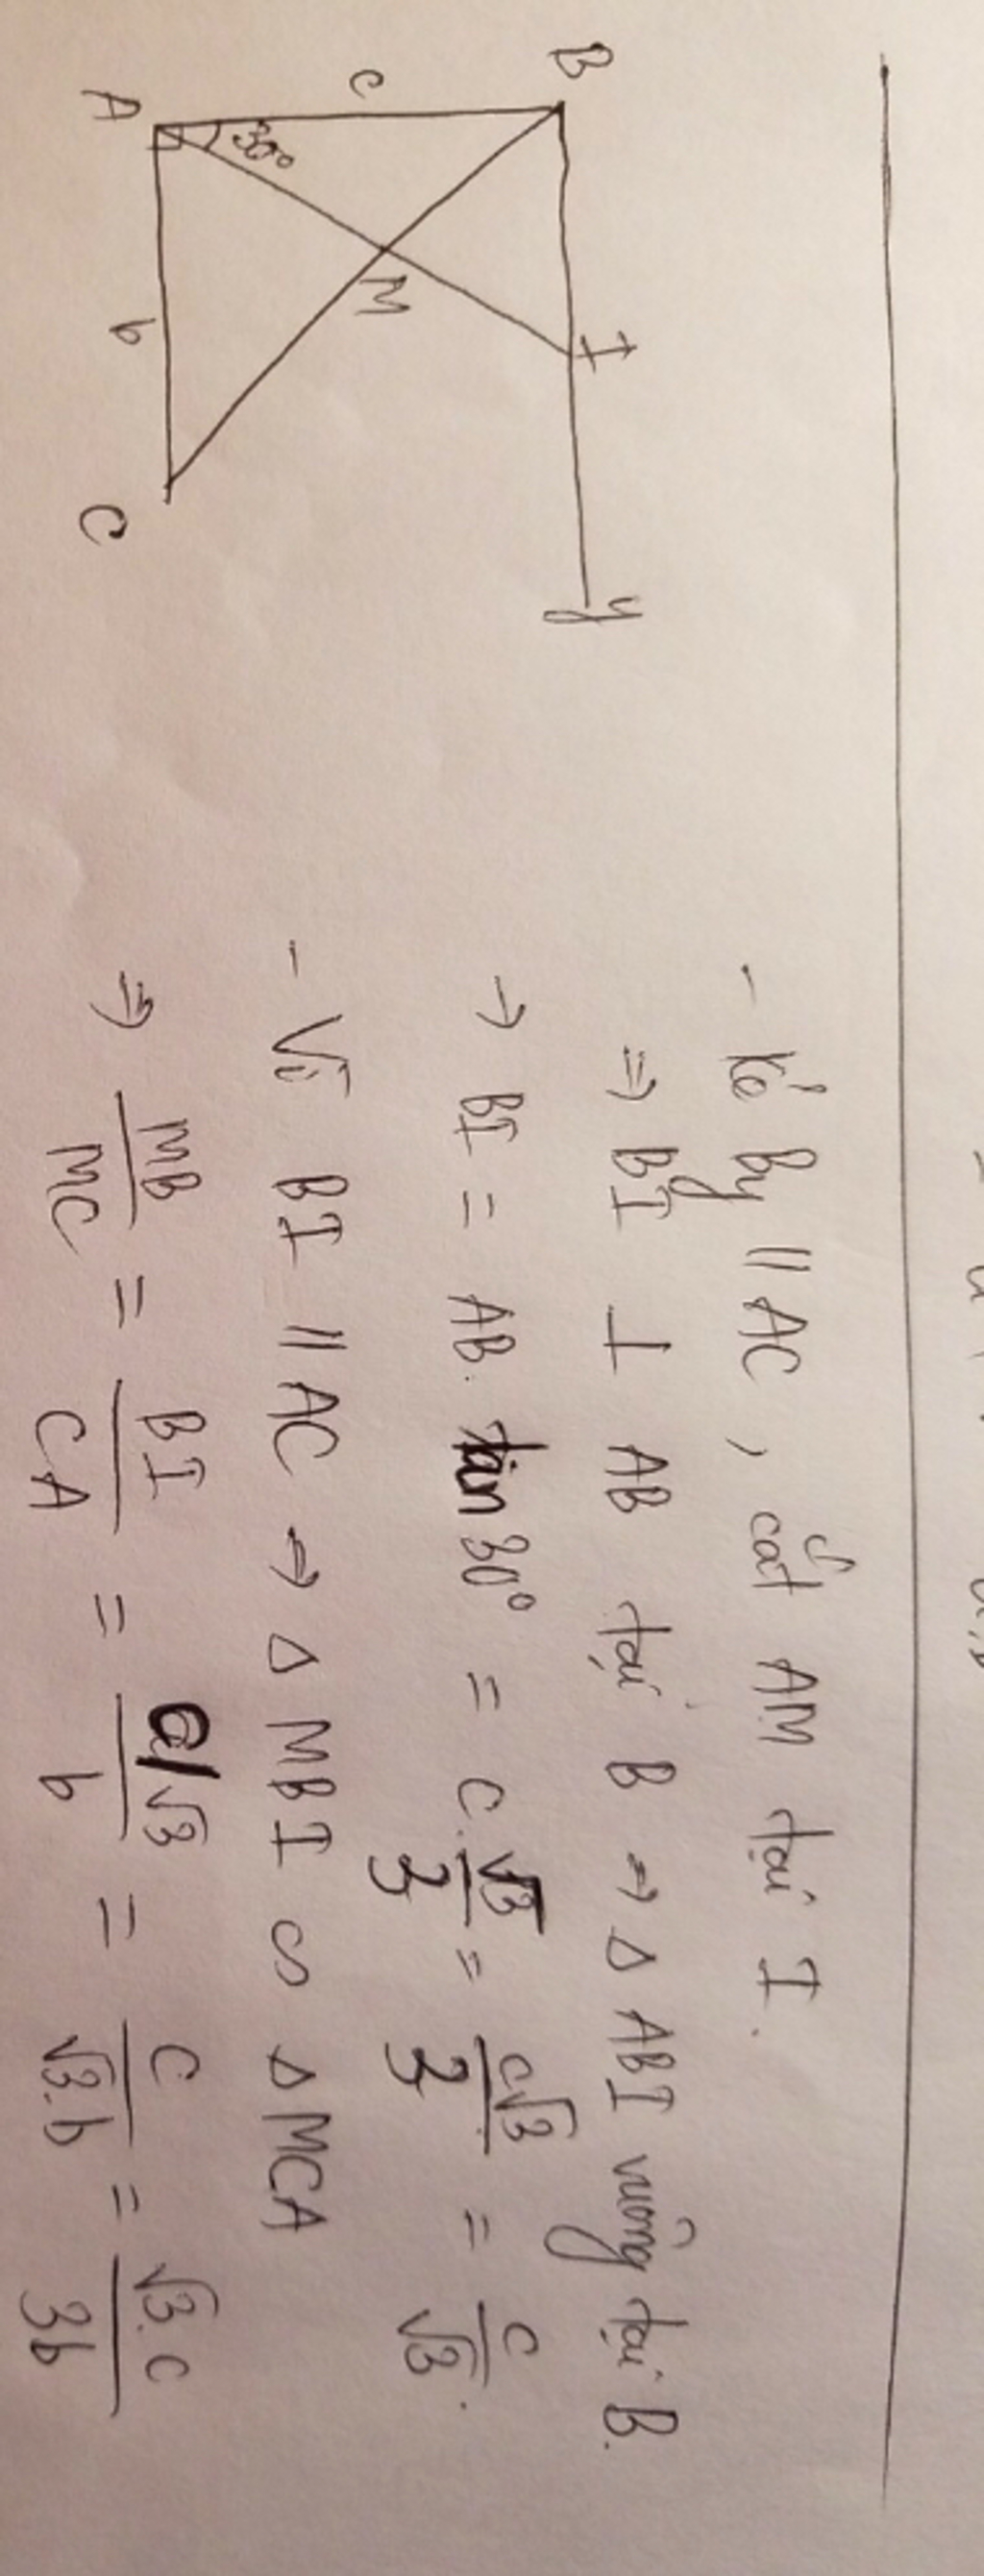 B
I
y
c
30°
M
A
b
C
- kẻ By // AC, cắt AM tại I.
⇒ BI ⊥ AB tại B ⇒ Δ ABI vuông tại B.
→ BI = AB. tan 30° = c. √3/3 = c√3/3 = c/√3.
- Vì BI // AC ⇒ Δ MBI ∽ Δ MCA
⇒ MB/MC = BI/CA = c/√3/b = c/√3.b = √3.c/3b